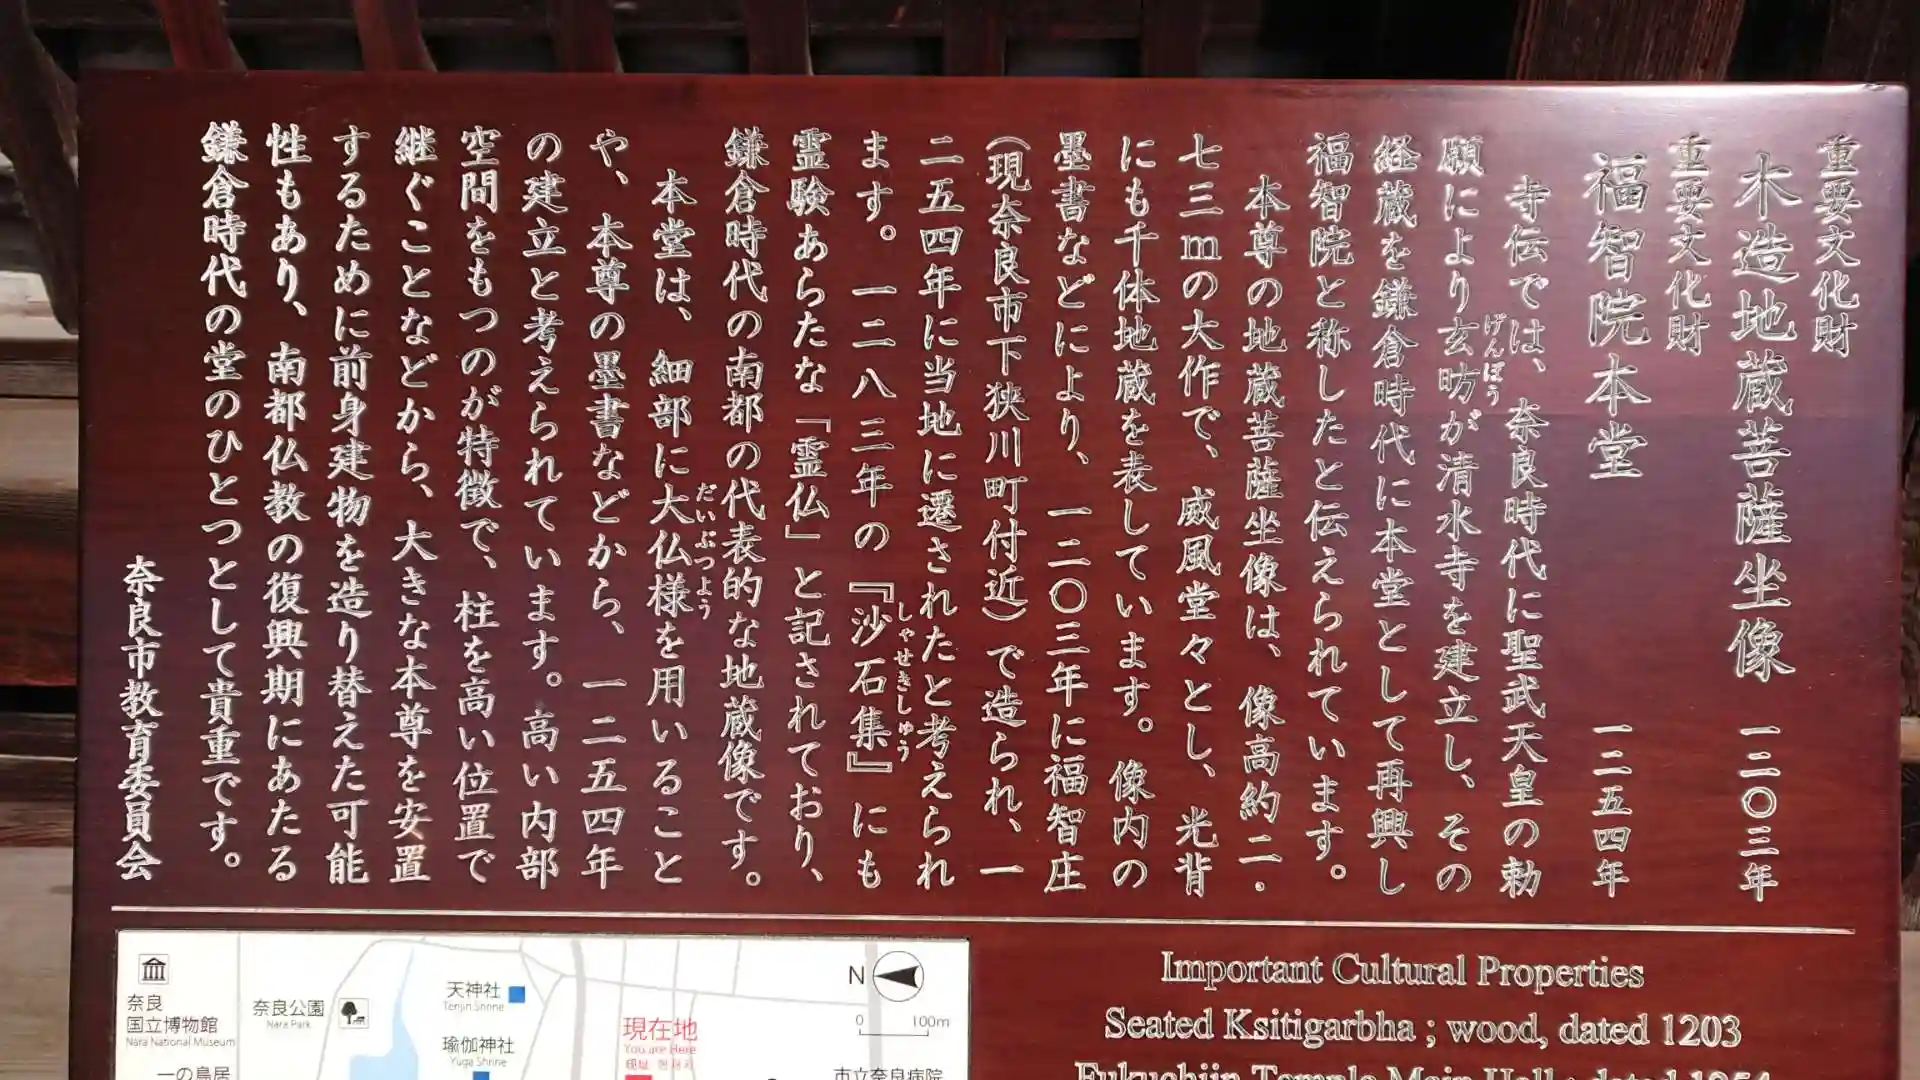 重要文化財
木造地蔵菩薩坐像 一二〇三年
重要文化財
福智院本堂 一二五四年
寺伝では、奈良時代に聖武天皇の勅
願により玄昉が清水寺を建立し、その
げんぼう
経蔵を鎌倉時代に本堂として再興し
福智院と称したと伝えられています。
本尊の地蔵菩薩坐像は、像高約二．
七三ｍの大作で、威風堂々とし、光背
にも千体地蔵を表しています。像内の
墨書などにより、一二〇三年に福智庄
（現奈良市下狭川町付近）で造られ、一
二五四年に当地に遷されたと考えられ
ます。一二八三年の『沙石集』にも
しゃせきしゅう
霊験あらたな「霊仏」と記されており、
鎌倉時代の南都の代表的な地蔵像です。
本堂は、細部に大仏様を用いること
だいぶつよう
や、本尊の墨書などから、一二五四年
の建立と考えられています。高い内部
空間をもつのが特徴で、柱を高い位置で
継ぐことなどから、大きな本尊を安置
するために前身建物を造り替えた可能
性もあり、南都仏教の復興期にあたる
鎌倉時代の堂のひとつとして貴重です。
奈良市教育委員会
奈良
国立博物館
Nara National Museum
一の鳥居
奈良公園
Nara Park
天神社
Tenjin Shrine
瑜伽神社
Yuga Shrine
現在地
You are Here
N
0 100m
市立奈良病院
Important Cultural Properties
Seated Ksitigarbha ; wood, dated 1203
Fukuchiin Temple Main Hall ; dated 1254